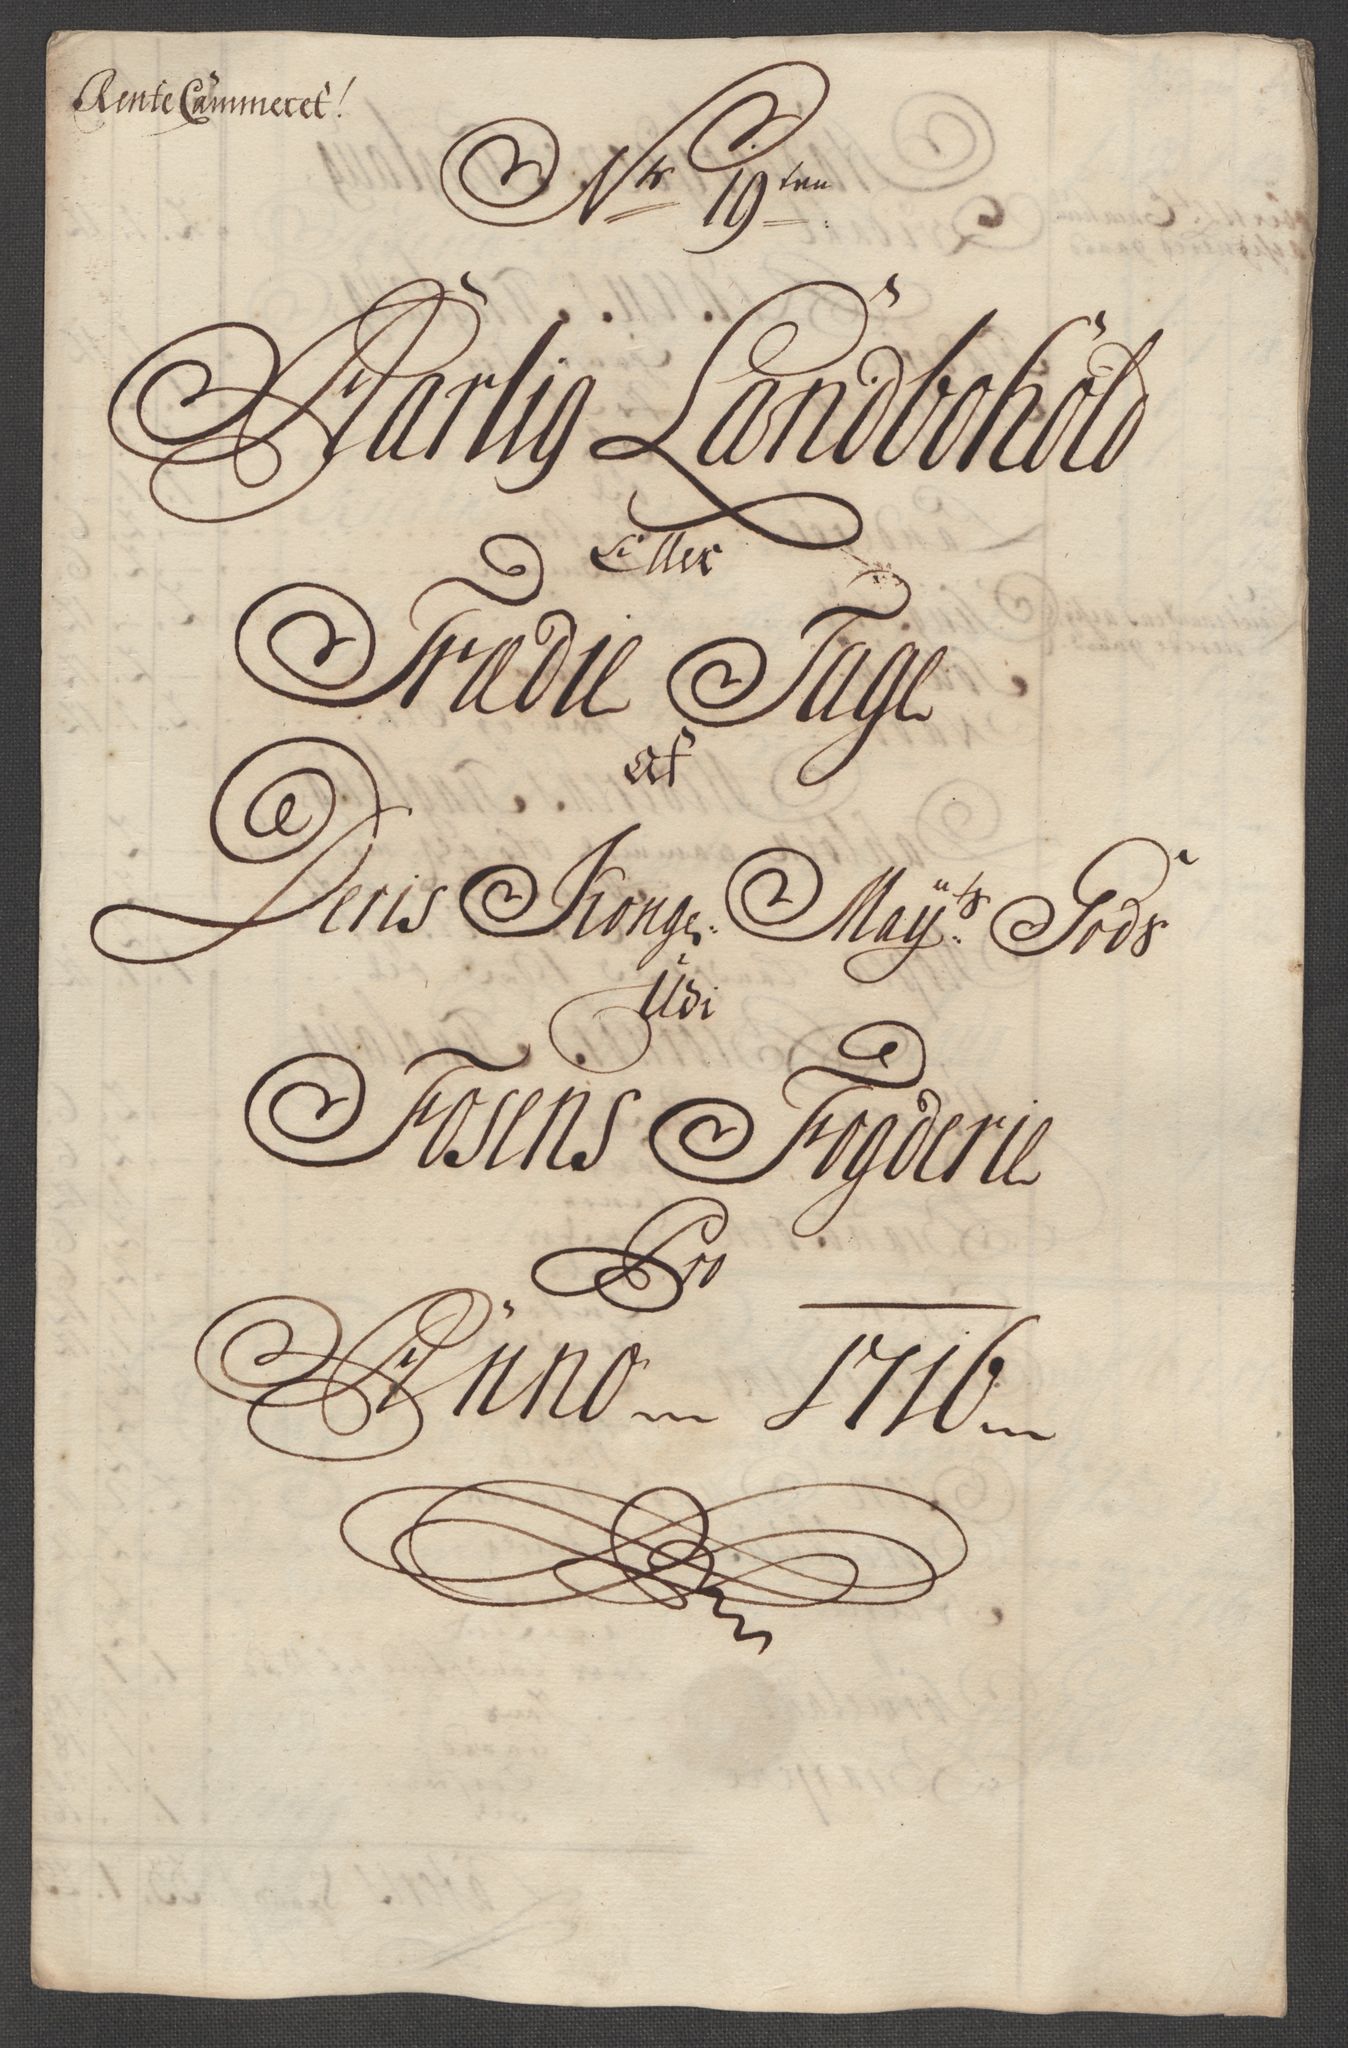 RenteCammeret!
Nr 19ten
Aarlig Landbohold
Eller
Trædie Tage
Af
Deris Konge. Mayts. Gods
Udi
Fosens Fogderie
Pro
Anno 1716